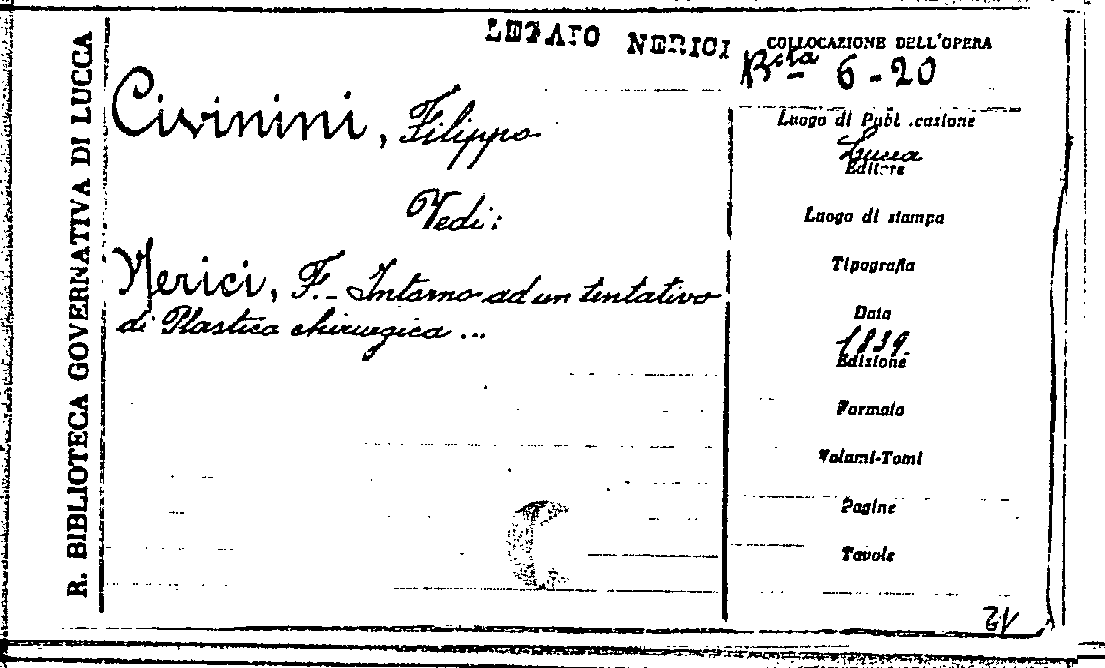 LEGATO NERICI
COLLOCAZIONE DELL'OPERA
B.cta 6-20
R. BIBLIOTECA GOVERNATIVA DI LUCCA
Civinini, Filippo
Vedi:
Nerici, F. - Intorno ad un tentativo
di Plastica chirurgica ...
Luogo di Pubblicazione
Lucca
Editore
Luogo di stampa
Tipografia
Data
1839
Edizione
Formato
Volumi-Tomi
Pagine
Tavole